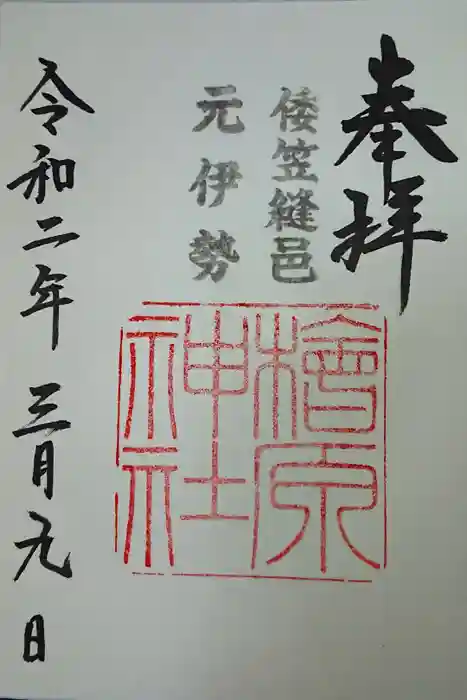 奉拝
倭笠縫邑
元伊勢
檜原
神社
令和二年三月九日